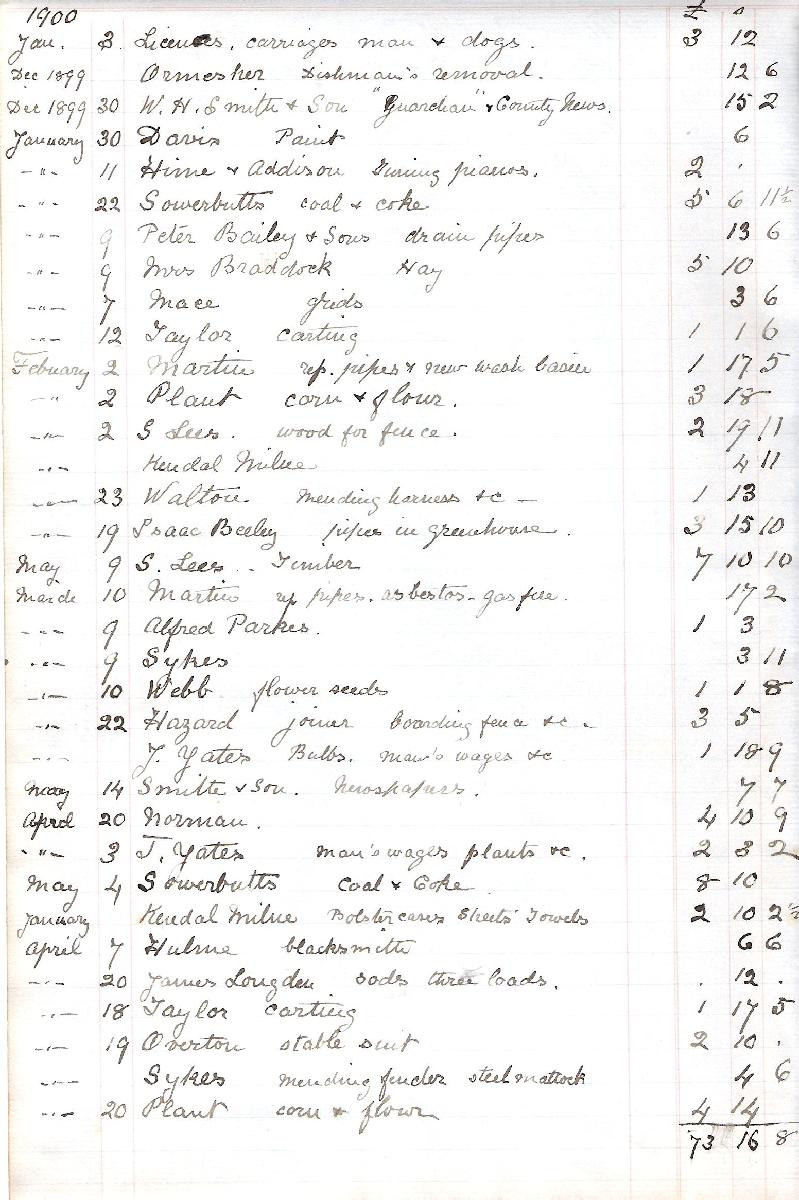 1900 £ s
Jan. 3 Licences, carriages man & dogs. 3 12
Dec 1899 Ormesher Dishman's removal. 12 6
Dec 1899 30 W. H. Smith & Son "Guardian" & County News. 15 2
January 30 Davis Paint 6
-"- 11 Hime & Addison Tuning pianos. 2 .
-"- 22 Sowerbutts coal & coke 5 6 11½
-"- 9 Peter Bailey & Sons drain pipes 13 6
-"- 9 Mrs Braddock Hay 5 10
-"- 7 Mace grids 3 6
-"- 12 Taylor carting 1 1 6
Febuary 2 Martin rep. pipes & new wash basin 1 17 5
-"- 2 Plant corn & flour. 3 18
-"- 2 S Lees. wood for fence. 2 19 11
-"- Kendal Milne 4 11
-"- 23 Walton. Mending harness &c - 1 13
-"- 19 Isaac Beeley pipes in greenhouse. 3 15 10
May 9 S. Lees - Timber 7 10 10
March 10 Martin rep pipes. asbestos - gas fire. 17 2
-"- 9 Alfred Parkes. 1 3
-"- 9 Sykes 3 11
-"- 10 Webb flower seeds 1 1 8
-"- 22 Hazard joiner boarding fence &c - 3 5
-"- J. Yates Bulbs. man's wages &c 1 18 9
May 14 Smith & Son. Newspapers. 7 7
April 20 Norman. 4 10 9
-"- 3 J. Yates man's wages plants &c. 2 3 2
May 4 Sowerbutts Coal & Coke 8 10
January Kendal Milne Bolster cases Sheets Towels 2 10 2½
April 7 Hulme blacksmith 6 6
-"- 20 James Longden sods three loads. . 12 .
-"- 18 Taylor carting 1 17 5
-"- 19 Overton stable suit 2 10 .
Sykes mending fender steel mattock 4 6
-"- 20 Plant corn & flour 4 14
73 16 8